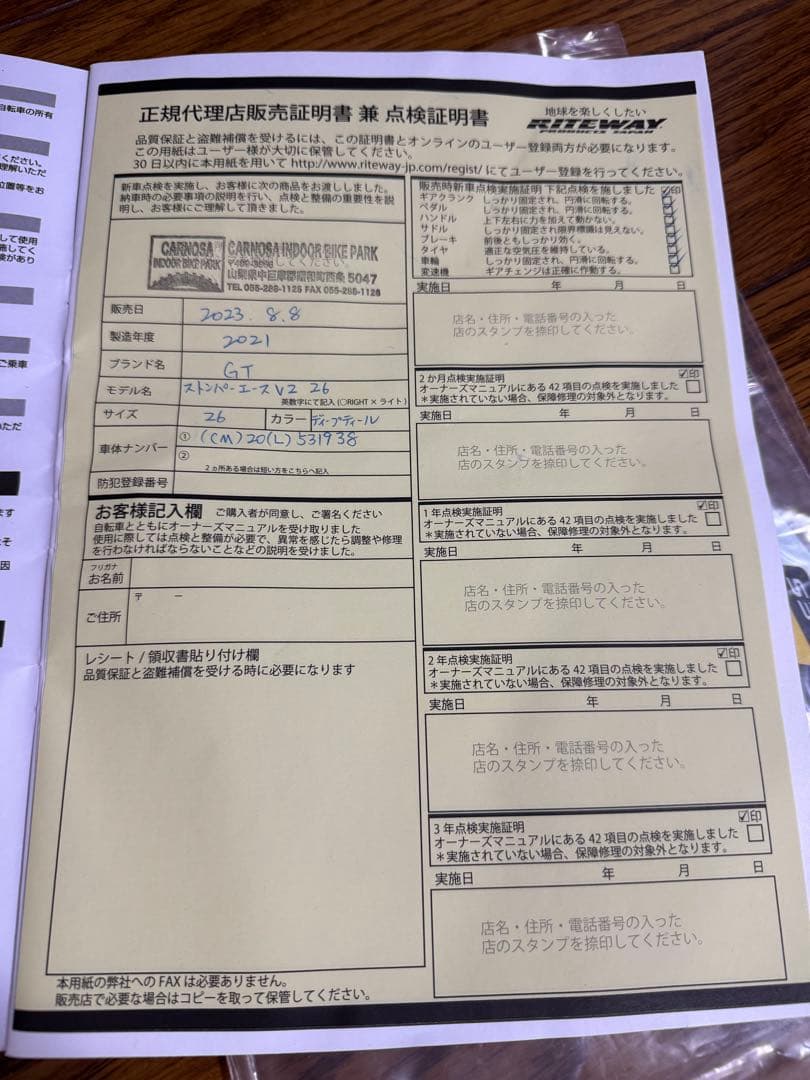 自転車の所有
ください。
理解いただ
位置等をお
して使用
施してく
検があり
ご乗車
いただ
ます
たそ
因
正規代理店販売証明書 兼 点検証明書
地球を楽しくしたい
RITEWAY
PRODUCTS JAPAN
品質保証と盗難補償を受けるには、この証明書とオンラインのユーザー登録両方が必要になります。
この用紙はユーザー様が大切に保管してください。
30日以内に本用紙を用いて http://www.riteway-jp.com/regist/ にてユーザー登録を行ってください。
新車点検を実施し、お客様に次の商品をお渡ししました。
納車時の必要事項の説明を行い、点検と整備の重要性を説
明し、お客様にご理解して頂きました。
CARNOSA
INDOOR BIKE PARK
CARNOSA INDOOR BIKE PARK
してください。
山梨県中巨摩郡昭和町西条 5047
TEL 055-288-1125 FAX 055-288-1126
販売日 2023. 8.8
製造年度 2021
ブランド名 GT
モデル名 ストンパーエース V2 26
英数字にて記入 (○RIGHT × ライト)
サイズ 26 カラー ディープティール
車体ナンバー ① (CM)20(L)531938
②
2ヵ所ある場合は短い方をこちらへ記入
防犯登録番号
お客様記入欄 ご購入者が同意し、ご署名ください
自転車とともにオーナーズマニュアルを受け取りました
使用に際しては点検と整備が必要で、異常を感じたら調整や修理
を行わなければならないことなどの説明を受けました。
フリガナ
お名前
ご住所 〒 ー
レシート / 領収書貼り付け欄
品質保証と盗難補償を受ける時に必要になります
本用紙の弊社へのFAXは必要ありません。
販売店で必要な場合はコピーを取って保管してください。
販売時新車点検実施証明 下記点検を施しました ☑印
ギアクランク しっかり固定され、円滑に回転する。
ペダル しっかり固定され、円滑に回転する。
ハンドル 上下左右に力を加えて動かない。
サドル しっかり固定され限界標識は見えない。
ブレーキ 前後ともしっかり効く。
タイヤ 適正な空気圧を維持している。
車輪 しっかり固定され、円滑に回転する。
変速機 ギアチェンジは正確に作動する。
実施日 年 月 日
店名・住所・電話番号の入った
店のスタンプを捺印してください。
2か月点検実施証明 ☑印
オーナーズマニュアルにある42項目の点検を実施しました
＊実施されていない場合、保障修理の対象外となります。
実施日 年 月 日
店名・住所・電話番号の入った
店のスタンプを捺印してください。
1年点検実施証明 ☑印
オーナーズマニュアルにある42項目の点検を実施しました
＊実施されていない場合、保障修理の対象外となります。
実施日 年 月 日
店名・住所・電話番号の入った
店のスタンプを捺印してください。
2年点検実施証明 ☑印
オーナーズマニュアルにある42項目の点検を実施しました
＊実施されていない場合、保障修理の対象外となります。
実施日 年 月 日
店名・住所・電話番号の入った
店のスタンプを捺印してください。
3年点検実施証明 ☑印
オーナーズマニュアルにある42項目の点検を実施しました
＊実施されていない場合、保障修理の対象外となります。
実施日 年 月 日
店名・住所・電話番号の入った
店のスタンプを捺印してください。